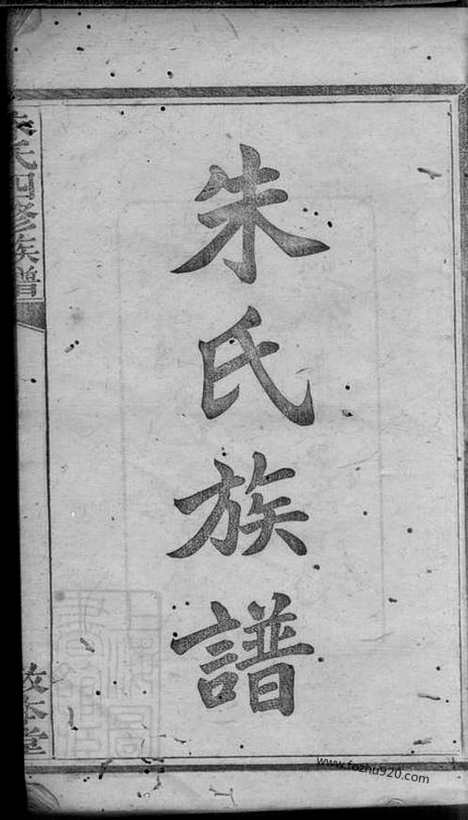 朱氏族譜
氏四修族譜
堂
www.fozhu920.com